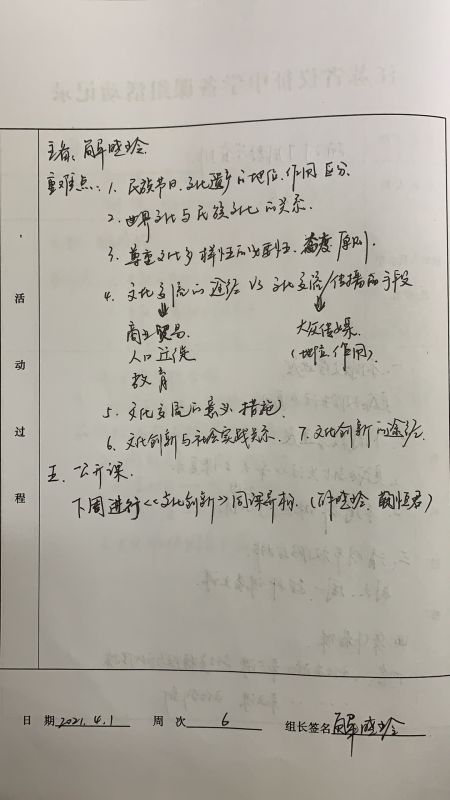 主备：解晓玲
重难点：1. 民族节日、文化遗产的地位、作用区分
2. 世界文化与民族文化的关系.
3. 尊重文化多样性的必要性、态度、原则.
4. 文化交流的途径 VS 文化交流/传播的手段
商业贸易 大众传媒
人口迁徙 (地位、作用)
教育
5. 文化交流的意义、措施
6. 文化创新与社会实践关系. 7. 文化创新的途径.
五、公开课.
下周进行《文化创新》同课异构. (解晓玲、恒君)
活动过程
日期 2021.4.1 周次 6 组长签名 解晓玲